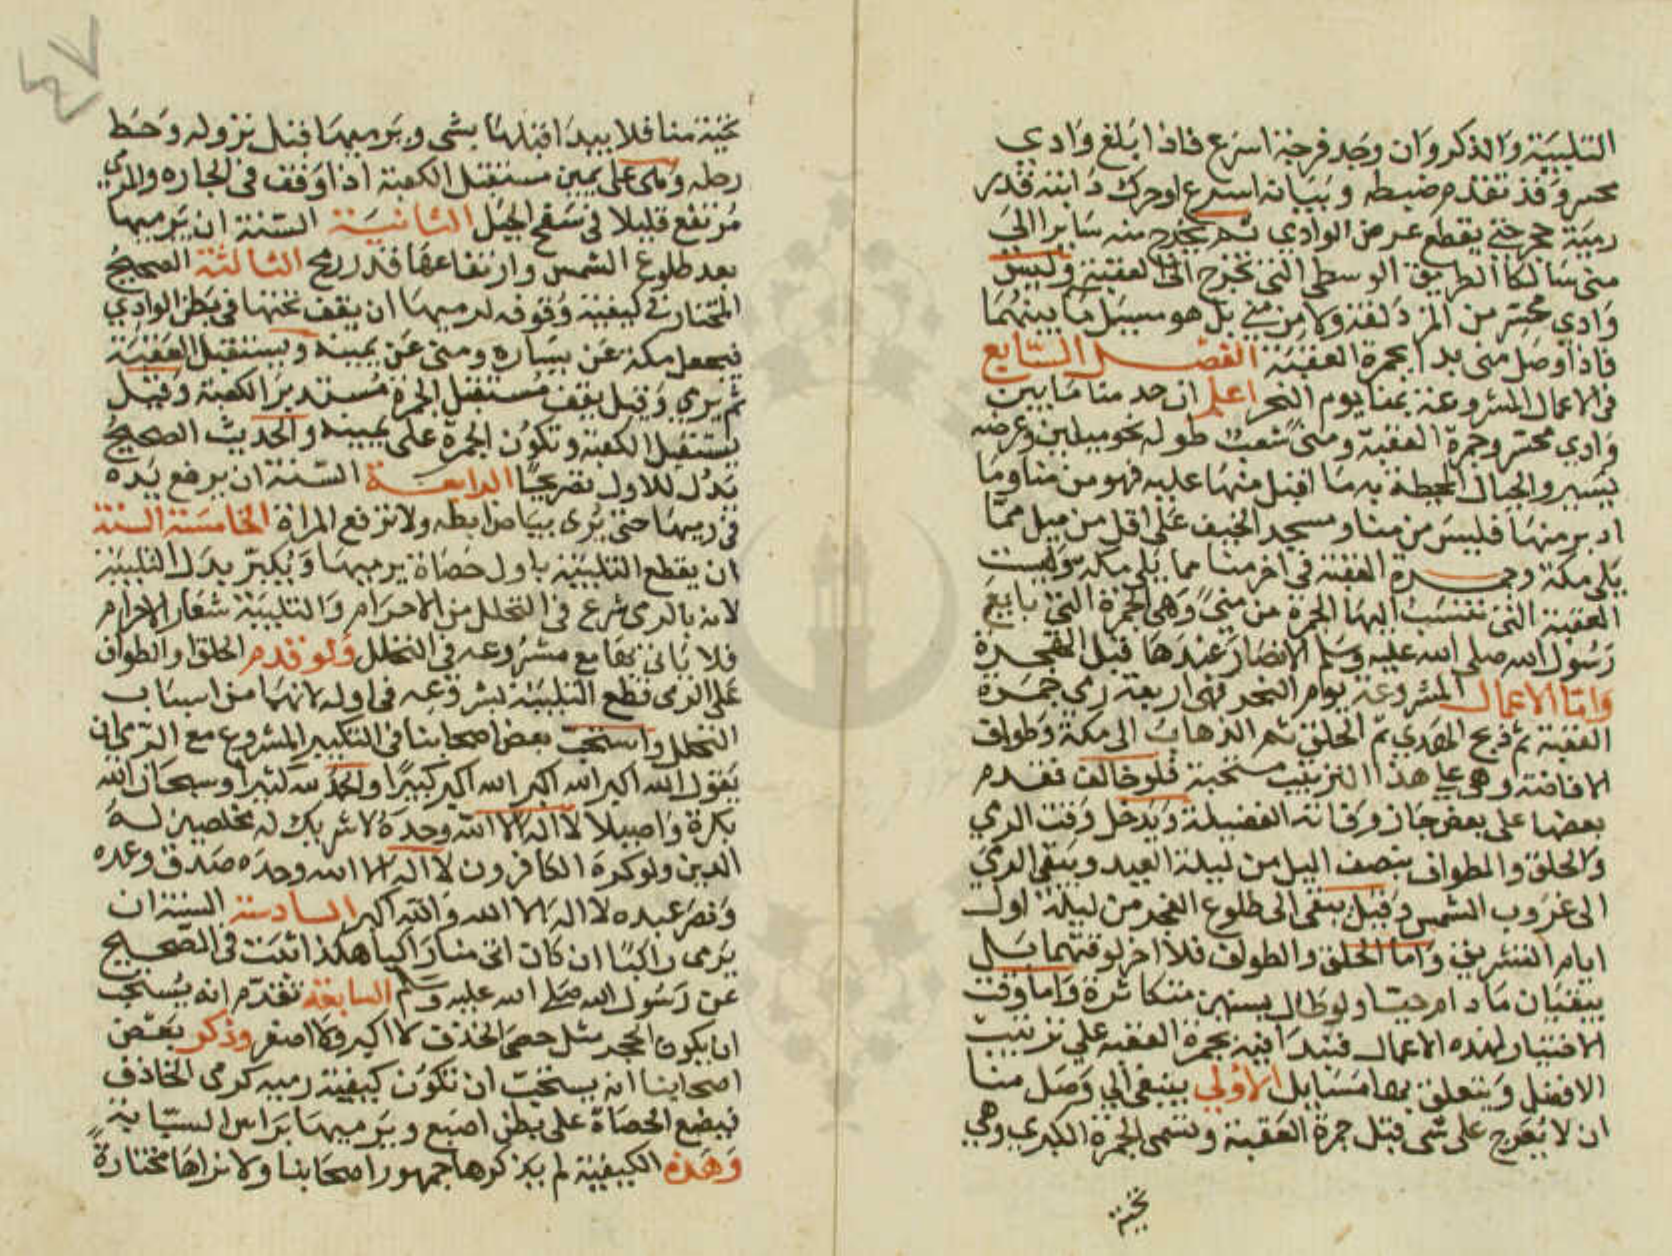 التلبية والذكر وان وجد فرجة اسرع فاذا بلغ وادي
محسر وقد تقدم ضبطه وبيانه اسرع او حرك دابته قدر
رمية حجر حتي يقطع عرض الوادي ثم يخرج منه سايرا الي
منى سالكا الطريق الوسطي التي تخرج الى العقبة وليس
وادي محسر من المزدلفة ولا من مني بل هو مسيل ما بينهما
فاذا وصل منى بدا بجمرة العقبة الفصل السابع
في الاعمال المشروعة بمنا يوم النحر اعلم ان حد منا ما بين
وادي محسر وجمرة العقبة ومنى شعب طوله نحو ميلين وعرضه
يسير والجبال المحيطة به ما اقبل منها عليه فهو من منا وما
ادبر منها فليس من منا ومسجد الخيف على اقل من ميل مما
يلى مكة وجمرة العقبة في اخر منا مما يلى مكة وليست
العقبة التى تنسب اليها الجمرة من منى وهى الجمرة التى بايع
رسول الله صلى الله عليه وسلم الانصار عندها قبل الهجرة
واما الاعمال المشروعة يوم النحر فهى اربعة رمي جمرة
العقبة ثم ذبح الهدي ثم الحلق ثم الذهاب الى مكة وطواف
الافاضة وهو على هذا الترتيب مستحبة فلو خالف فقدم
بعضها على بعض جاز وفاته الفضيلة ويدخل وقت الرمي
والحلق والطواف بنصف اليل من ليلة العيد ويبقى الرمي
الى غروب الشمس وقيل يبقى الى طلوع الفجر من ليلة اول
ايام التشريق واما الحلق والطواف فلا اخر لوقتهما بل
يبقيان ما دام حيا ولو طال سنين متكاثرة واما وقت
الاختيار لهذه الاعمال فيبدا فيه بجمرة العقبة علي ترتيب
الافضل ويتعلق بها مسايل الاولي ينبغى اذا وصل منا
ان لا يعرج على شى قبل جمرة العقبة وتسمى الجمرة الكبري وهي
تحية
تحية منا فلا يبدا قبلها بشى ويرميها قبل نزوله وحط
رحله وهى على يمين مستقبل الكعبة اذا وقف في الجاده والمرمي
مرتفع قليلا في سفح الجبل الثانية السنة ان يرميها
بعد طلوع الشمس وارتفاعها قدر رمح الثالثة الصحيح
المختار في كيفية وقوفه لرميها ان يقف تحتها في بطن الوادي
فيجعل مكة عن يساره ومنى عن يمينه ويستقبل العقبة
ثم يرمي وقيل يقف مستقبل الجمرة مستدبر الكعبة وقيل
يستقبل الكعبة وتكون الجمرة على يمينه والحديث الصحيح
يدل للاول تصريحا الرابعة السنة ان يرفع يده
في رميها حتى يرى بياض ابطه ولا ترفع المراة الخامسة السنة
ان يقطع التلبية باول حصاة يرميها ويكبر بدل التلبية
لانه بالرمى شرع في التحلل من الاحرام والتلبية شعار الاحرام
فلا ياتى بها مع مشروعه في التحلل ولو قدم الحلق او الطواف
على الرمى قطع التلبية بشروعه في اوله لانهما من اسباب
التحلل واستحب بعض اصحابنا في التكبير المشروع مع الرمي ان
يقول الله اكبر الله اكبر الله اكبر كبيرا والحمد لله كثيرا وسبحان الله
بكرة واصيلا لا اله الا الله وحده لا شريك له مخلصين له
الدين ولو كره الكافرون لا اله الا الله وحده صدق وعده
ونصر عبده لا اله الا الله والله اكبر السادسة السنة ان
يرمى راكبا ان كان اتى منا راكبا هكذا ثبت في الصحيح
عن رسول الله صلى الله عليه وسلم السابعة تقدم انه يستحب
ان يكون الحجر مثل حصى الخذف لا اكبر ولا اصغر وذكر بعض
اصحابنا انه يستحب ان تكون كيفية رميه كرمى الخاذف
فيضع الحصاة على بطن اصبع ويرميها براس السبابة
وهذه الكيفية لم يذكرها جمهور اصحابنا ولا نراها مختارة